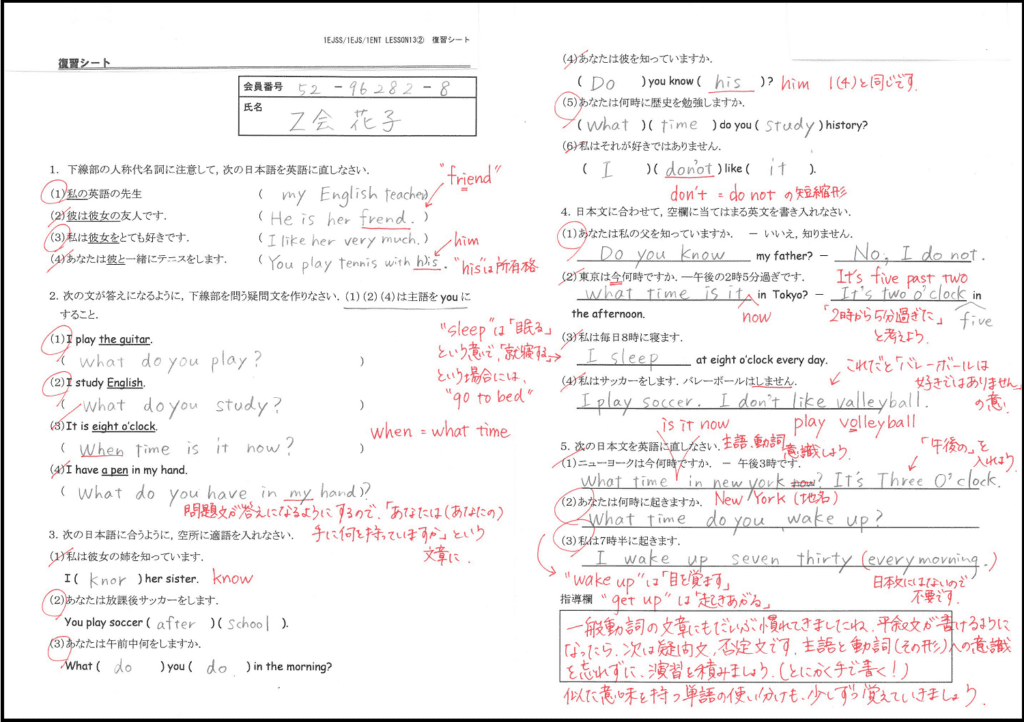 1EJSS/1EJS/1ENT LESSON13② 復習シート
復習シート
会員番号 52-96282-8
氏名 Z会 花子
1. 下線部の人称代名詞に注意して，次の日本語を英語に直しなさい．
(1)私の英語の先生 ( my English teacher)
"friend"
(2)彼は彼女の友人です． ( He is her frend. )
(3)私は彼女をとても好きです． ( I like her very much.)
him
(4)あなたは彼と一緒にテニスをします． ( You play tennis with his.
"his"は「所有格
2. 次の文が答えになるように，下線部を問う疑問文を作りなさい．(1)(2)(4)は主語を you に
すること．
(1)I play the guitar.
( what do you play? )
(2)I study English.
( What do you study? )
(3)It is eight o'clock.
( When time is it now? )
when = what time
(4)I have a pen in my hand.
( What do you have in my hand)?
問題文が答えになるようにするので、「あなたは(あなたの)
手に何を持っていますか」という
文章に．
"sleep"は「眠る」
という意で，「就寝する」
という場合には，
"go to bed"
3. 次の日本語に合うように，空所に適語を入れなさい．
(1)私は彼女の姉を知っています．
I ( knor ) her sister. know
(2)あなたは放課後サッカーをします．
You play soccer ( after )( school ).
(3)あなたは午前中何をしますか．
What ( do ) you ( do ) in the morning?
(4)あなたは彼を知っていますか．
( Do ) you know ( his )? him 1(4)と同じです．
(5)あなたは何時に歴史を勉強しますか．
( What )( time ) do you ( study ) history?
(6)私はそれが好きではありません．
( I )( don'ot ) like ( it ).
don't = do not の短縮形
4. 日本文に合わせて，空欄に当てはまる英文を書き入れなさい．
(1)あなたは私の父を知っていますか． － いいえ，知りません．
Do you know my father? － No, I do not.
(2)東京は今何時ですか．－午後の2時5分過ぎです． It's five past two
what time is it in Tokyo? － It's two o'clock in
now
the afternoon.
「2時から5分過ぎた」
と考えよう．
five
(3)私は毎日8時に寝ます．
I sleep at eight o'clock every day.
これだと「バレーボールは
好きではありません」
の意．
(4)私はサッカーをします．バレーボールはしません．
I play soccer. I don't like valleyball.
is it now
play volleyball
5. 次の日本文を英語に直しなさい．主語・動詞
意識しよう．
「午後の」を
入れよう．
(1)ニューヨークは今何時ですか． － 午後3時です．
What time in new york now? It's Three O'clock.
New York (地名)
(2)あなたは何時に起きますか．
What time do you wake up?
(3)私は7時半に起きます．
I wake up seven thirty (every morning.)
"wake up"は「目を覚ます」
"get up"は「起きあがる」
日本文にはないので
不要です．
指導欄
一般動詞の文章にもだいぶ慣れてきましたね．平叙文が書けるように
なったら，次は疑問文，否定文です．主語と動詞(その形)への意識
を忘れずに，演習を積みましょう．(とにかく手で書く！)
似た意味を持つ単語の使い分けも，少しずつ覚えていきましょう．